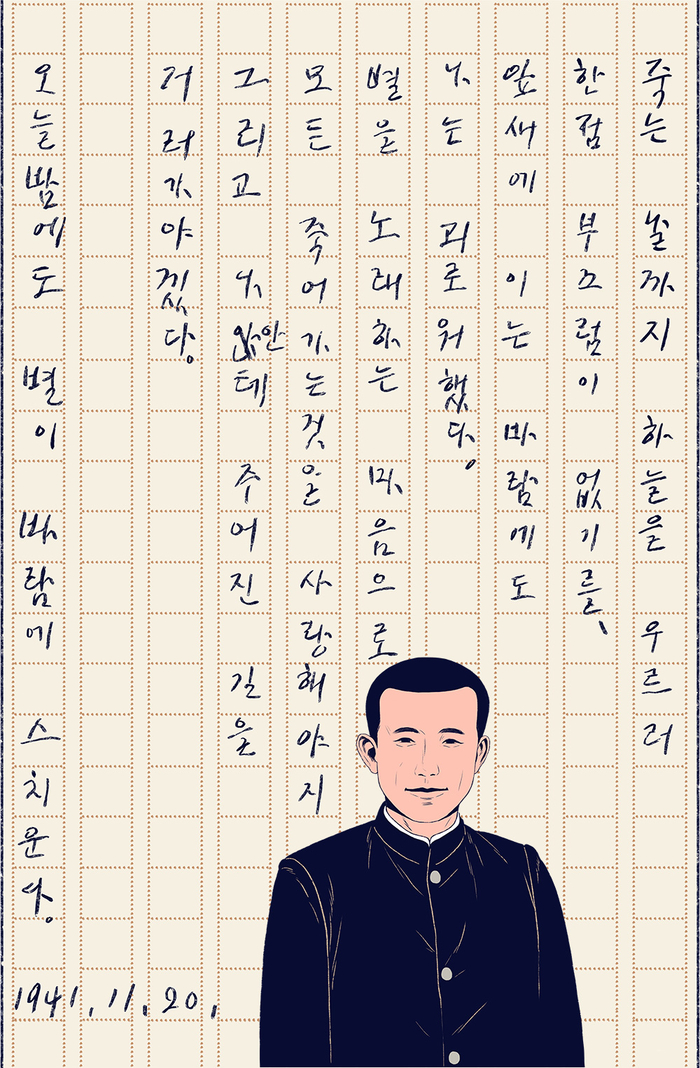 죽는 날까지 하늘을 우르러
한점 부끄럼이 없기를,
잎새에 이는 바람에도
나는 괴로워했다.
별을 노래하는 마음으로
모든 죽어가는것을 사랑해야지
그리고 나안테 주어진 길을
거러가야겠다.
오늘밤에도 별이 바람에 스치운다.
1941. 11. 20.